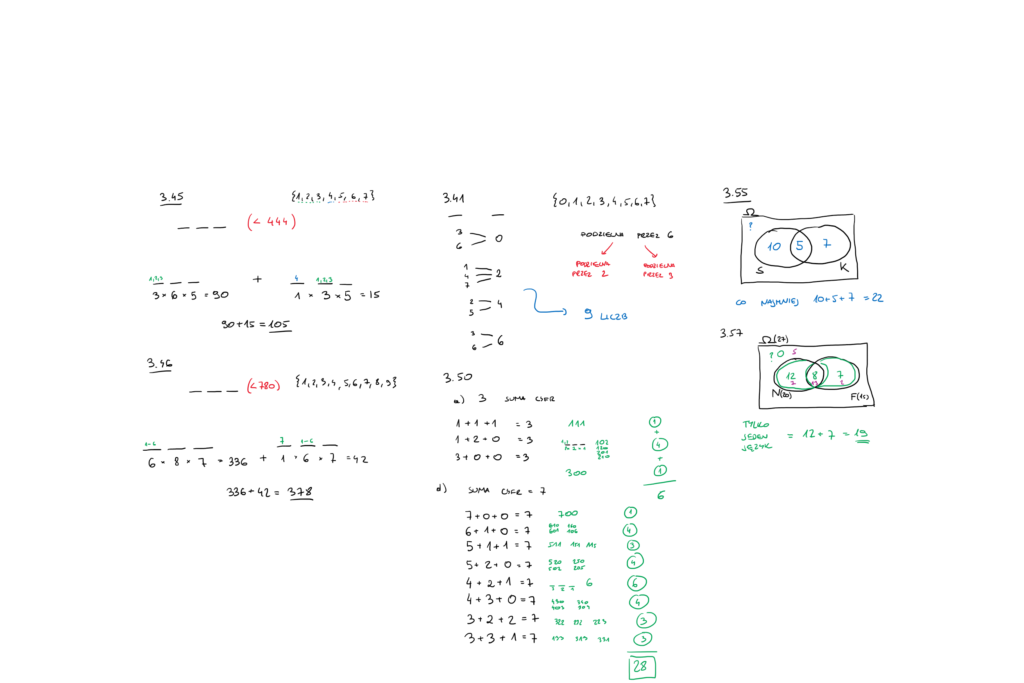 3.45
{1,2,3,4,5,6,7}
_ _ _ (< 444)
1,2,3
3 × 6 × 5 = 90
+
4 1,2,3
1 × 3 × 5 = 15
90 + 15 = 105
3.46
_ _ _ (<780)
{1,2,3,4,5,6,7,8,9}
1-6
6 × 8 × 7 = 336
+
7 1-6
1 × 6 × 7 = 42
336 + 42 = 378
3.41
{0,1,2,3,4,5,6,7}
3
6
0
1
4
7
2
2
5
4
3
6
6
PODZIELNA PRZEZ 6
PODZIELNA
PRZEZ 2
PODZIELNA
PRZEZ 3
9 LICZB
3.50
a) 3 SUMA CYFR
1 + 1 + 1 = 3 111 1
+
1 + 2 + 0 = 3 102 120 201 210 4
+
3 + 0 + 0 = 3 300 1
6
d) SUMA CYFR = 7
7 + 0 + 0 = 7 700 1
6 + 1 + 0 = 7 610 160 601 106 4
5 + 1 + 1 = 7 511 151 115 3
5 + 2 + 0 = 7 520 250 502 205 4
4 + 2 + 1 = 7 6 6
4 + 3 + 0 = 7 430 340 403 304 4
3 + 2 + 2 = 7 322 232 223 3
3 + 3 + 1 = 7 133 313 331 3
28
3.55
Ω
?
10 5 7
S K
CO NAJMNIEJ 10+5+7 = 22
3.57
Ω(27)
? 0 5
12 8 7
N(20) F(15)
TYLKO
JEDEN = 12 + 7 = 19
JĘZYK